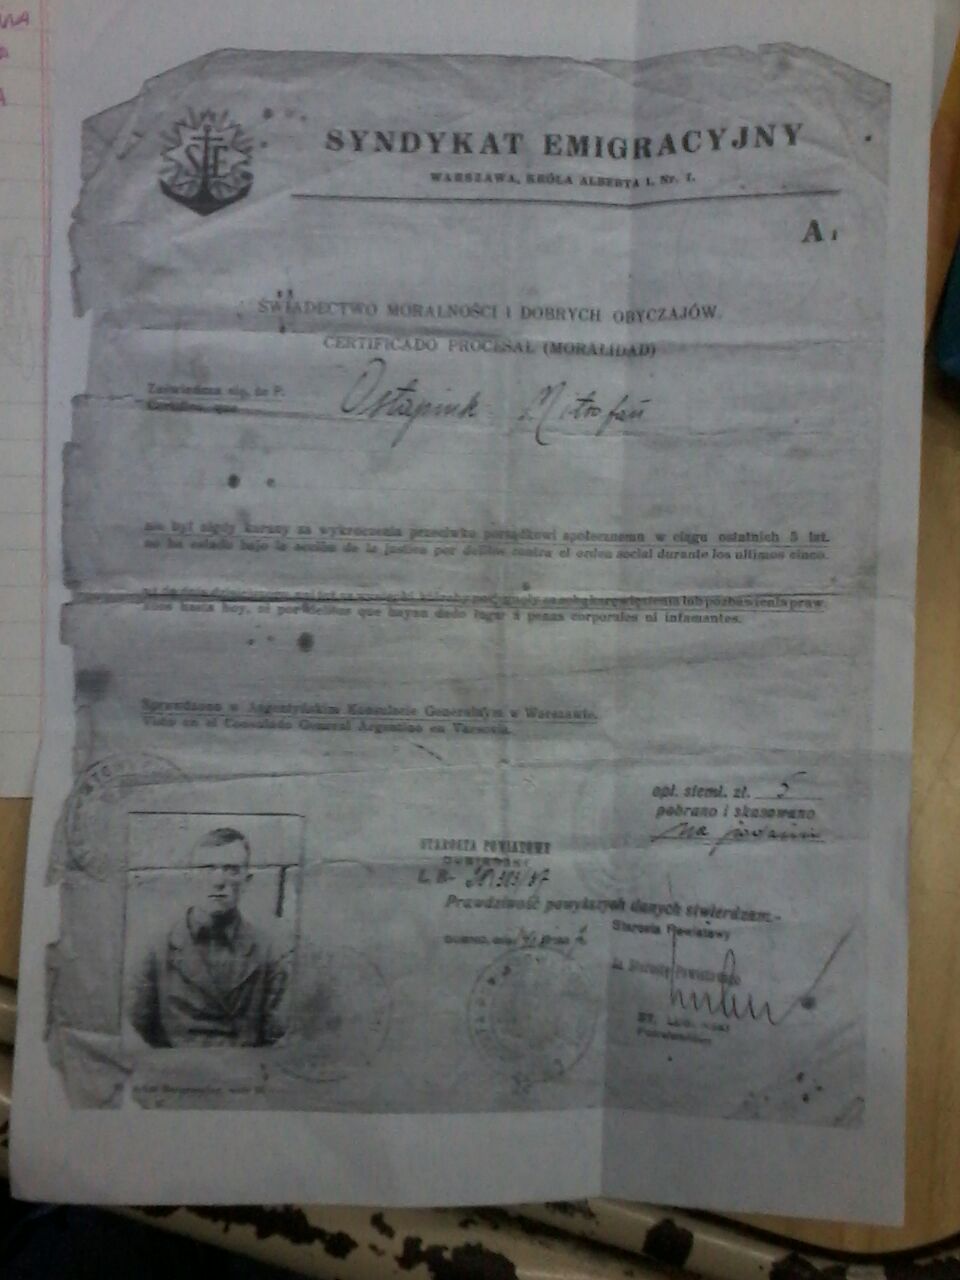 SYNDYKAT EMIGRACYJNY
WARSZAWA, KRÓLA ALBERTA I. Nr. 7.
A
ŚWIADECTWO MORALNOŚCI I DOBRYCH OBYCZAJÓW.
CERTIFICADO PROCESAL (MORALIDAD)
Zaświadcza się, że P.
Certifico, que
Ostapiuk Mitrofan
nie był nigdy karany za wykroczenia przeciwko porządkowi społecznemu w ciągu ostatnich 5 lat.
no ha estado bajo la acción de la justicia por delitos contra el orden social durante los ultimos cinco.
años hasta hoy, ni por delitos que hayan dado lugar a penas corporales ni infamantes.
Sprawdzono w Argentyńskim Konsulacie Generalnym w Warszawie.
Visto en el Consulado General Argentino en Varsovia.
opł. stempl. zł. 5
pobrano i skasowano
na podaniu
STAROSTA POWIATOWY
Prawdziwość powyższych danych stwierdzam.-
Starosta Powiatowy
za Starostę Powiatowego